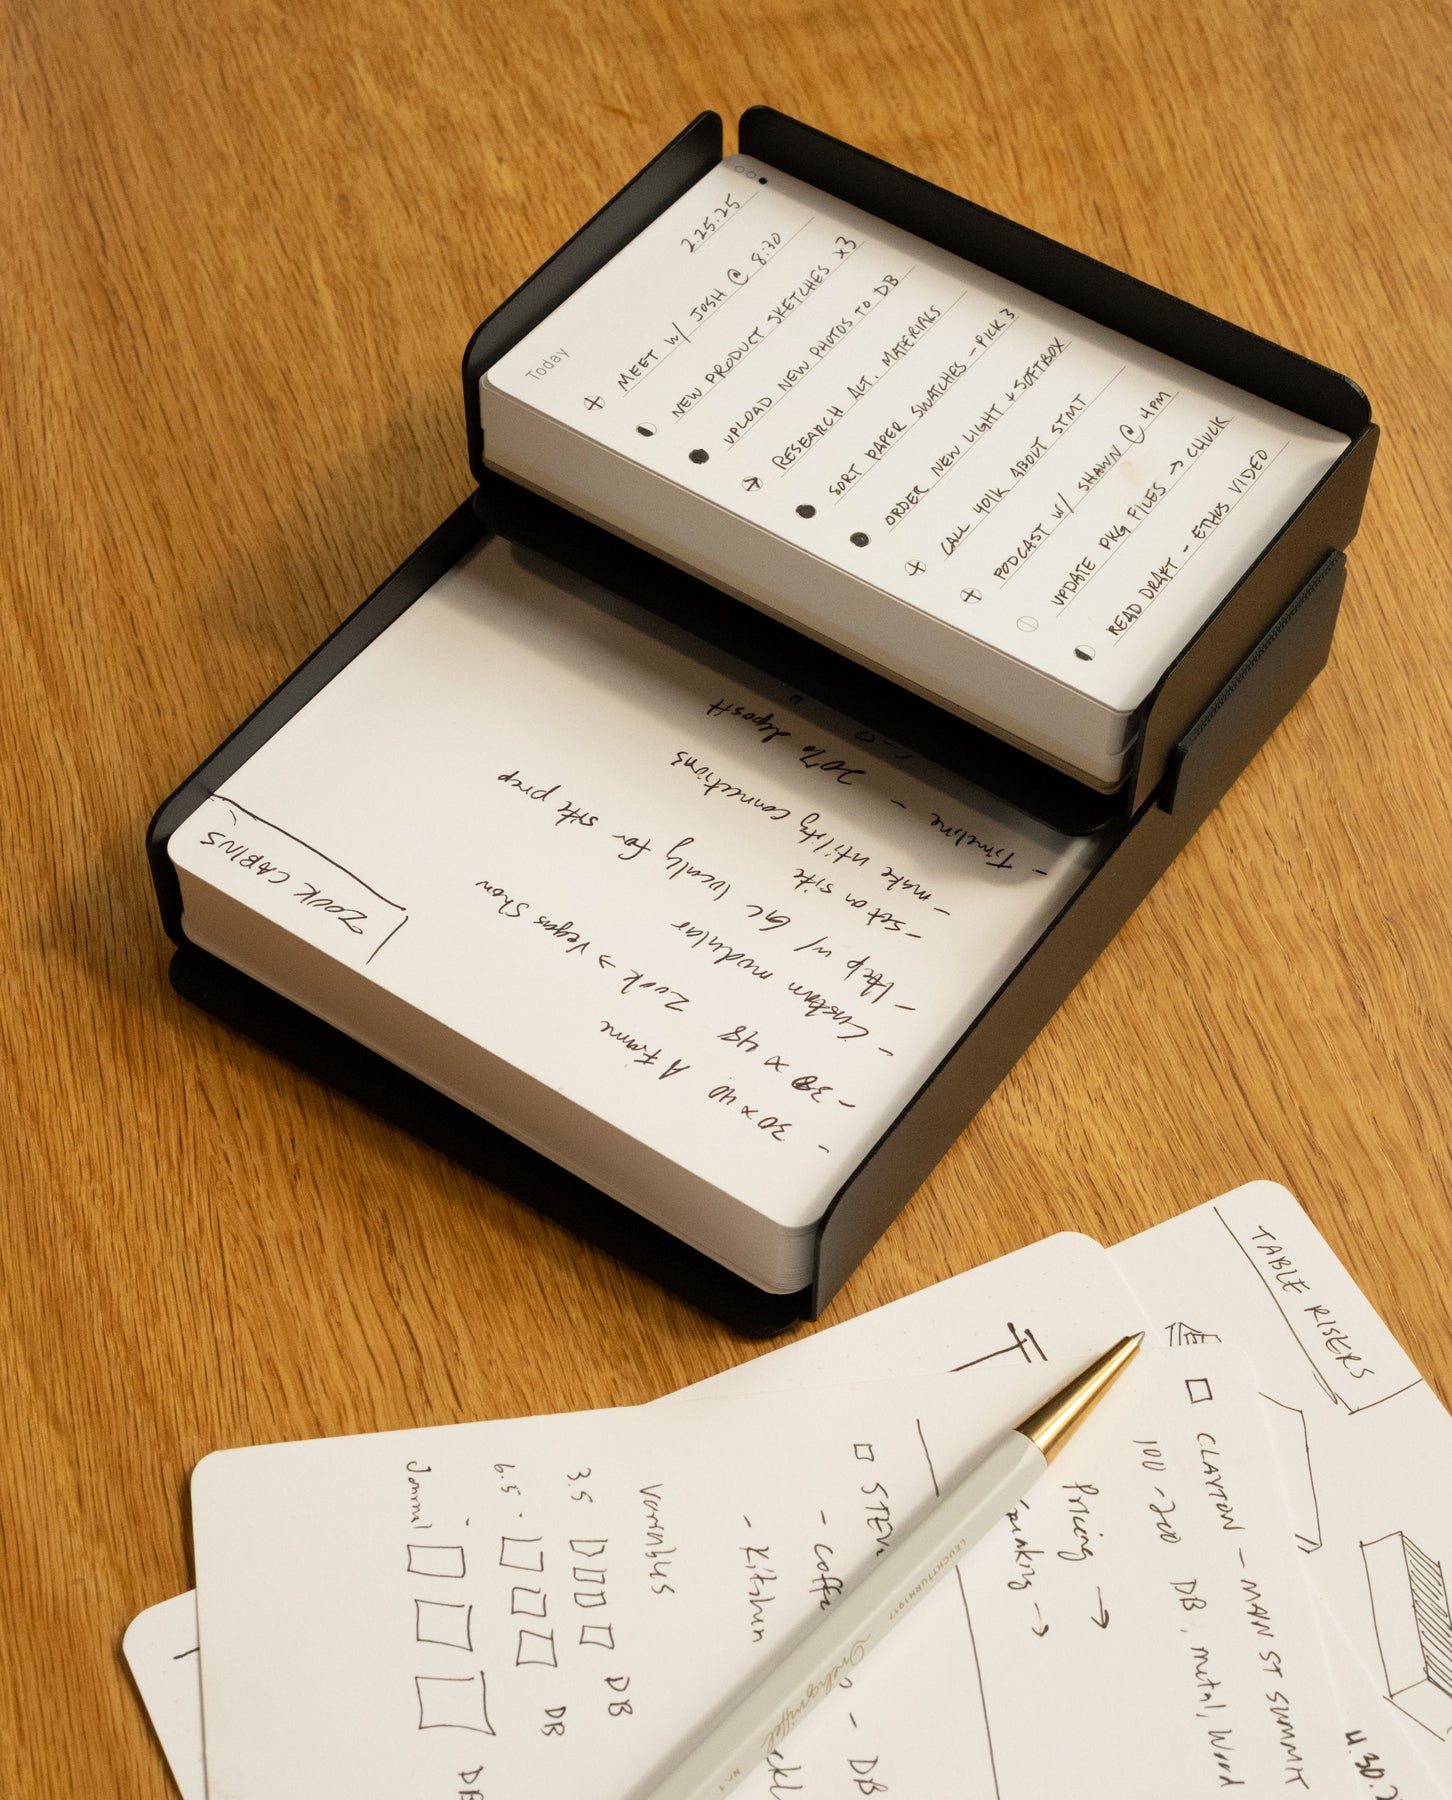 2.25.25
Today
MEET W/ JOSH @ 8:30
NEW PRODUCT SKETCHES X3
UPLOAD NEW PHOTOS TO DB
RESEARCH ALT. MATERIALS
SORT PAPER SWATCHES - PICK 3
ORDER NEW LIGHT + SOFTBOX
CALL 401K ABOUT STMT
PODCAST W/ SHAWN @ 4PM
UPDATE PKG FILES → CHUCK
READ DRAFT - ETHOS VIDEO
ZOOK CABINS
- 30 x 40 A Frame
- 38 x 48 Zook → Vegas Show
- Custom modular
- Help w/ GC locally for site prep
- set on site
- make utility connections
- Timeline
- 20% deposit
TABLE RISERS
CLAYTON - MAIN ST SUMMIT
100-200 DB, metal, Wood
Pricing →
STEV
- Coffe
- Kitchen
- DB
Variables
3.5 DB
6.5 DB
Journal DB
4.30.2
LEUCHTTURM1917
Drehgriffel
Nr. 1